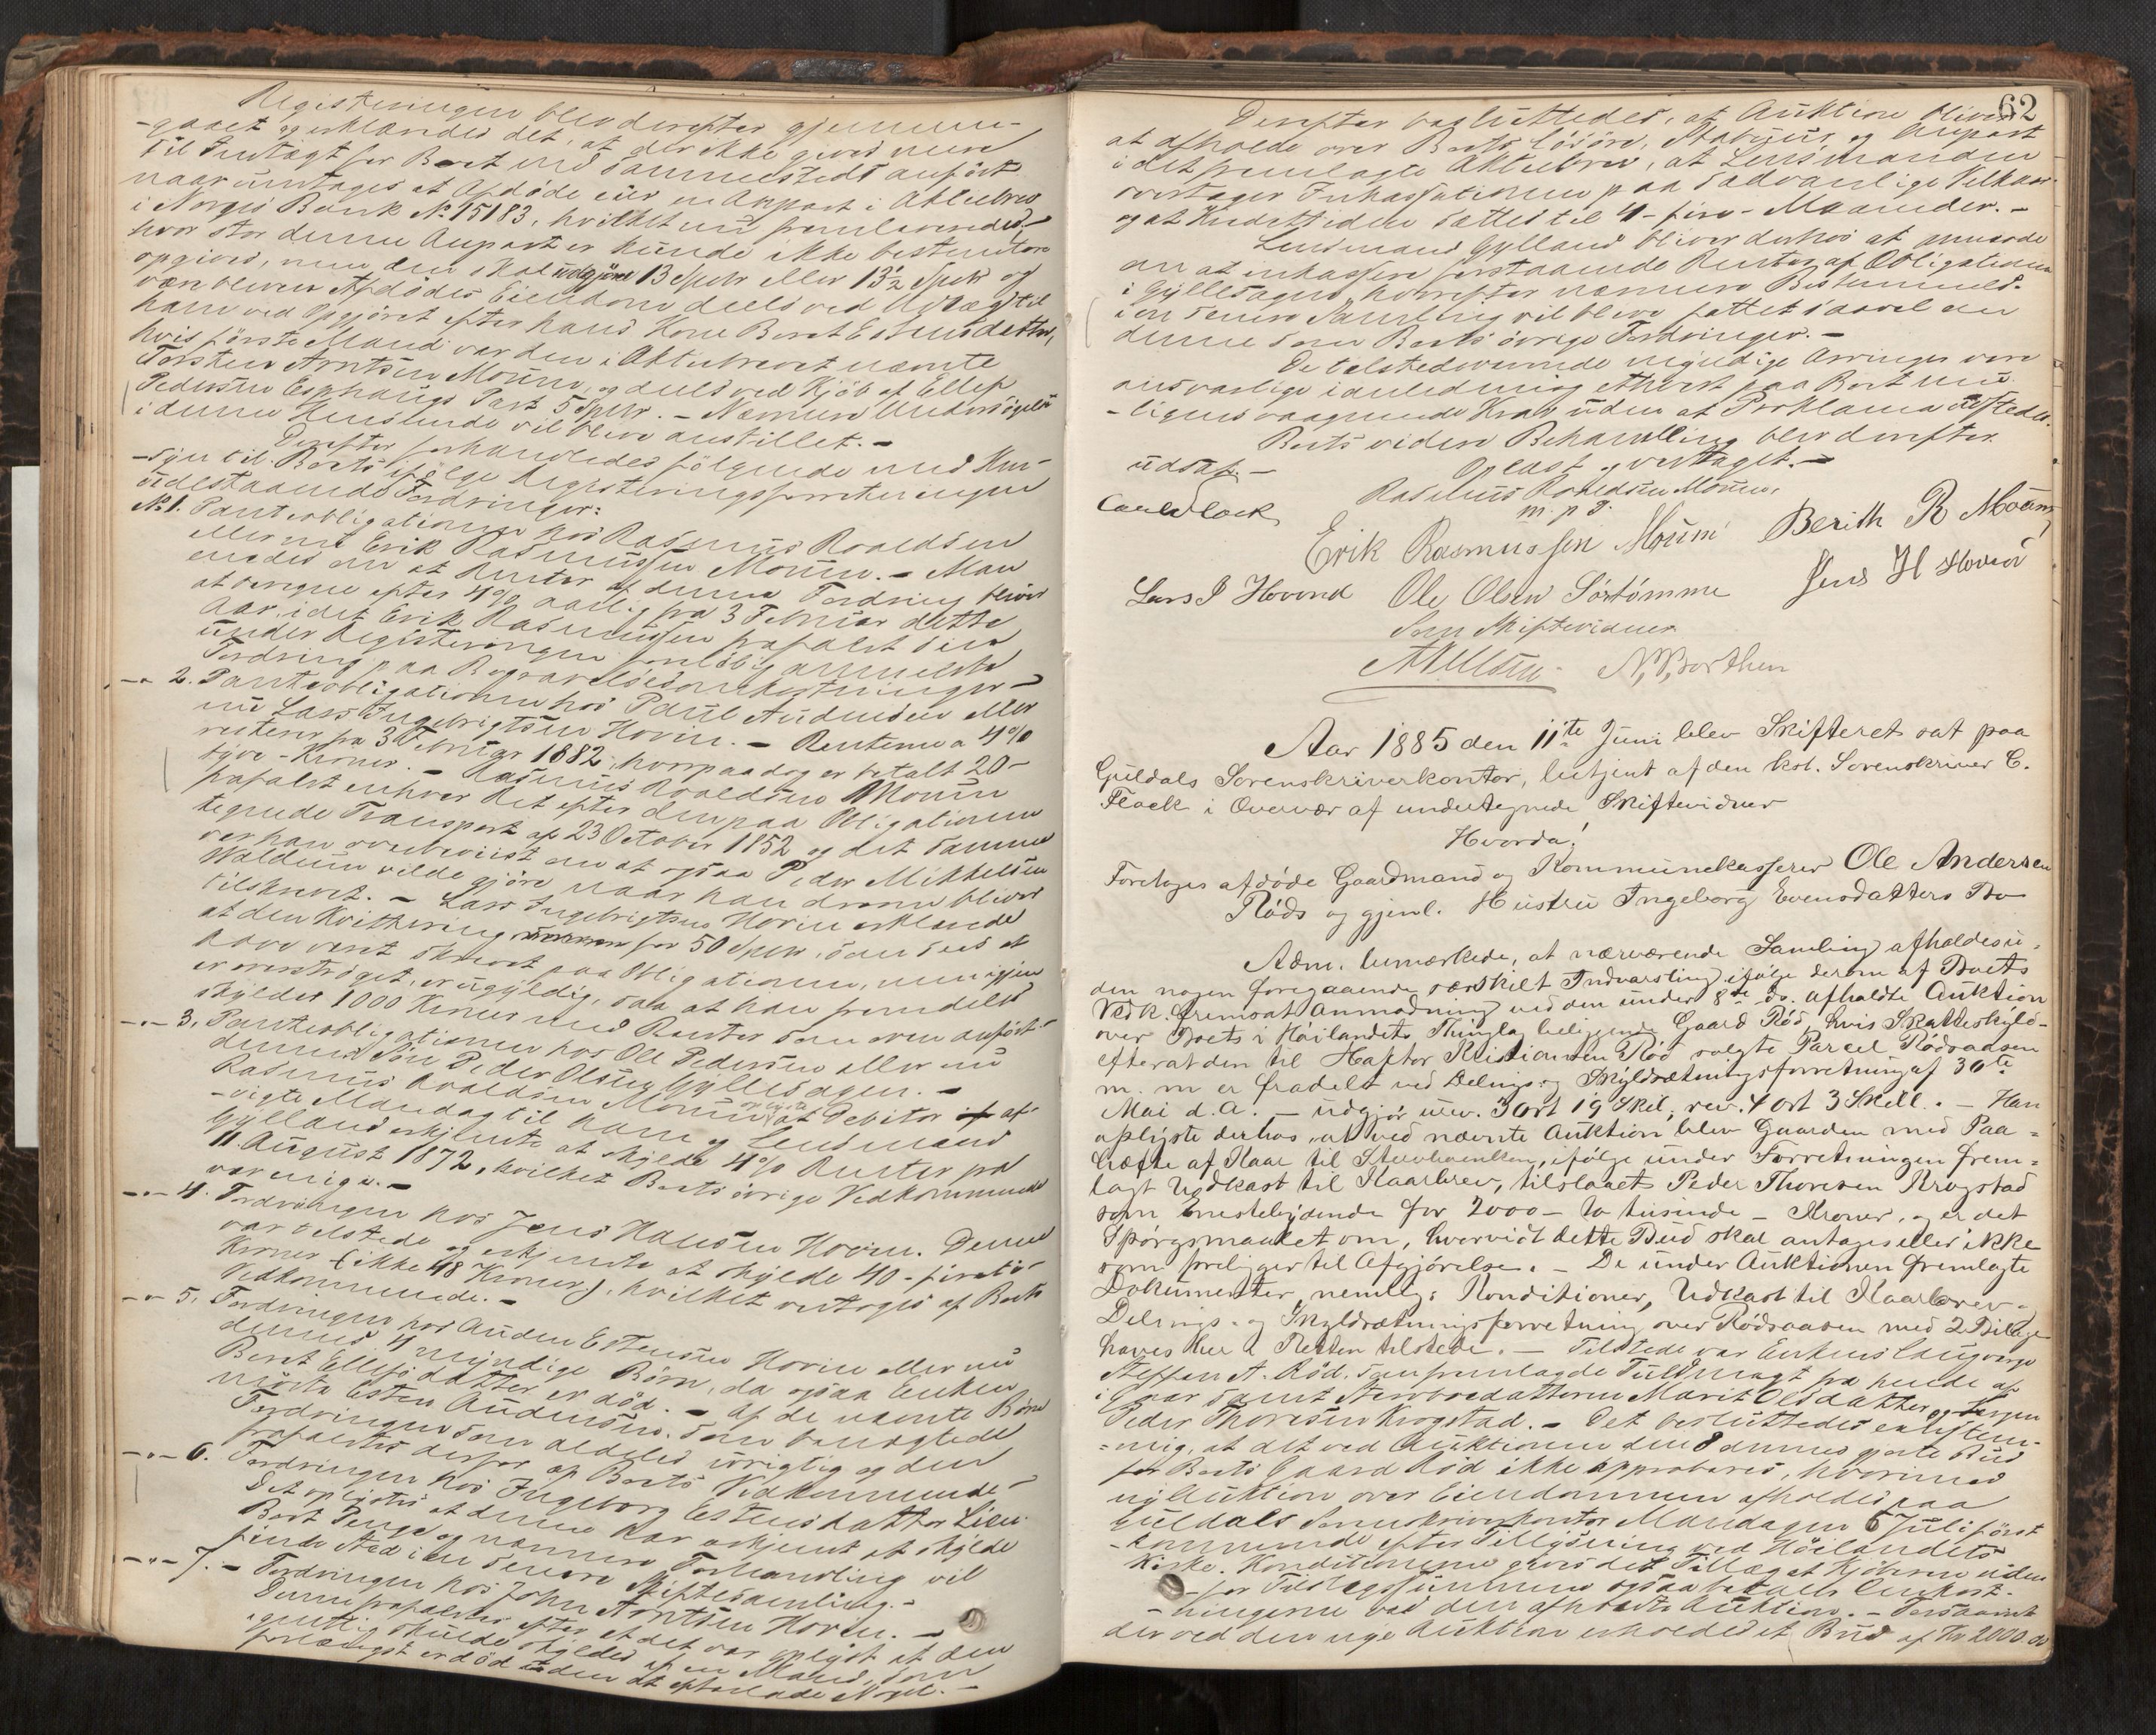 Registeringen blev derefter gjennem-
-gaaet og erklæredes det, at der ikke gives mere
til Indtægt for Boet end sammesteds anført
naar undtages at Afdøde eier en Anpart i Aktiebrev
i Norges Bank No 15183, hvilket nu fremleveredes.
hvor stor denne Anpart er kunde ikke bestemtere
opgives, men den skal udgjøre 13 Spdlr eller 13½ Spdlr og
være bleven Afdødes Eiendom deels ved Udlæg til
ham ved Opgjøret efter hans Kone Beret Estensdatter,
hvis første Mand var den i Aktiebrevet nævnte
Torsten Arntsen Mouen, og deels ved Kjøb af Ellef
Pedersen Esphaugs Part 5 Spdlr. - Nærmere Undersøgelse
i denne Henseende vil blive anstillet. -
Derefter forhandledes følgende med Hen-
-syn til Boets ifølge Registeringsforretningen
udestaaende Fordringer:
No 1. Panteobligationen hos Rasmus Roaldsen
eller nu Erik Rasmussen Mouen. - Man
enedes om at Renter af denne Fordring bliver
at beregne efter 4% aarlig fra 3 Februar dette
Aar, idet Erik Rasmussen frafaldt sin
under Registeringen foreløbig anmeldte
Fordring paa Begravelsesomkostninger -
-"- 2. Panteobligationen hos Paul Audensen eller
nu Lars Ingebrigtsen Hovin. - Renterne a 4%
resterer fra 3 Februar 1882, hvorpaa dog er betalt 20 -
tyve - Kroner. - Rasmus Roaldsen Mouen
frafaldt enhver Ret efter den paa Obligationen
tegnede Transport af 23 October 1852 og det samme
var han overbeviist om at ogsaa Peder Mikkelsen
Waldum vilde gjøre naar han derom bliver
tilskrevet. - Lars Ingebrigtsen Hovin erklærede
at den Kvittering for 50 Spdlr, som sees at
have vært skrevet paa Obligationen, men igjen
er overstrøget, er ugyldig, saa at han fremdeles
skylder 1000 Kroner med Renter som oven anført.
-"- 3. Panteobligationen hos Ole Pedersen eller nu
dennes Søn Peder Olsen Gyllesagen. -
Rasmus Roaldsen Mouen oplyste at Debitor af-
-vigte Mandag til ham og Lensmand
Gylland erkjendte at skylde 4% Renter fra
11 August 1872, hvilket Boets øvrige Vedkommende
var enige i. -
-"- 4. Fordringen hos Jens Hansen Hovin. Denne
var tilstede og erkjendte at skylde 40 - fireti -
Kroner (ikke 48 Kroner), hvilket vedtoges af Boets
Vedkommende. -
-"- 5. Fordringen hos Auden Estensen Hovin eller nu
dennes 4 myndige Børn, da ogsaa Enken
Beret Ellefsdatter er død. - Af de nævnte Børn
mødte Esten Audensen, som benægtede
Fordringen som aldeles urigtig og den
frafaldtes derfor af Boets Vedkommende -
-"- 6. Fordringen hos Ingeborg Estensdatter Lien.
Det oplystes at denne har erkjendt at skylde
Boet Penge og nærmere Forhandling vil
finde Sted i en senere Skiftesamling. -
-"- 7. - Fordringen hos John Arntsen Hovin. -
Denne frafaldtes efter at det var oplyst at den
egentlig skulde skyldes af en Mand, som
forlængst er død uden at efterlade Noget. -
62
Derefter besluttedes, at Auktion bliver
at afholde over Boets Løsøre, Stabuur, og Anpart
i det fremlagte Aktiebrev, at Lensmanden
overtager Inkassationen paa sædvanlige Vilkaar
og at Kredittiden sættes til 4 - fire - Maaneder. -
Lensmand Gylland bliver derhos at anmode
om at inkassere forstaaende Renter af Obligationen
i Gyllesagen, hvorefter nærmere Bestemmelse
i en senere Samling vil blive fattet saavel om
denne som Boets øvrige Fordringer. -
De tilstedeværende myndige Arvinger vare
ansvarlige i anledning ethvert paa Boet mu-
-ligens vaagnende Krav uden at Proklama udstedes.
Boets videre Behandling blev derefter
udsat. - Oplæst og vedtaget. -
Carl Flock Rasmus Roaldsen Mouen,
m. p. P.
Erik Rasmussen Mouni Berith R Moum
Lars I Hovind Ole Olsen Sörtömme Jens H Hovin
Som Skiftevidner
N. Borthen
Aar 1885 den 11te Juni blev Skifteret sat paa
Guldals Sorenskriverkontor, betjent af den kst. Sorenskriver C.
Flock i Overvær af undertegnede Skiftevidner
Hvorda!
Foretoges afdøde Gaardmand og Kommunekasserer Ole Andersen
Røds og gjenl. Hustru Ingeborg Evensdatters Bo
Adm. bemærkede, at nærværende Samling afholdes u-
den nogen foregaaende særskilt Indvarsling ifølge derom af Boets
Vedk. fremsat Anmodning ved den under 8de ds. afholdte Auktion
over Boets i Høilandets Thinglag beliggende Gaard Rød, hvis Skatteskyld -
efterat den til Haftor Kristiansen Rød solgte Parcel Rødsaasen
m. m er fradelt ved Delings- og Skyldsætningsforretning af 30te
Mai d. A. - udgjør urev. 3 ort 19 Skil, rev. 4 Ort 3 Skill. - Han
oplyste derhos, at ved nævnte Auktion blev Gaarden med Paa-
hæfte af Kaar til Stervboenken, ifølge under Forretningen frem-
lagt Udkast til Kaarbrev, tilslaaet Peder Thoresen Krogstad
som høistbydende for 2000 - to tusinde - Kroner, og er det
Spørgsmaalet om, hvorvidt dette Bud skal antages eller ikke
som foreligger til Afgjørelse. - De under Auktionen fremlagte
Dokumenter, nemlig: Konditioner, Udkast til Kaarbrev -
Delings- og Skyldsætningsforretning over Rødsaasen med 2 Bilage
haves her i Retten tilstede. - Tilstede var Enkens Laugværge
Steffen A. Rød, som fremlagde Fuldmagt fra hende af
i Gaar samt Stervboedatteren Marit Olsdatter og
Peder Thoresen Krogstad. - Det besluttedes enstem-
-mig, at det ved Auktionen den 8 dennes gjorte Bud
for Boets Gaard Rød ikke approberes, hvorimod
ny Auktion over Eiendommen afholdes paa
Guldals Sorenskriverkontor Mandagen 6 Juli først-
-kommende efter Tillysning ved Høilandets
Kirke. Konditionerne gives det Tillæg at Kjøberen uden-
-for Tilslagssummen ogsaa betaler Omkost-
-ningerne ved den afholdte Auktion. - Forsaavidt
der ved den nye Auktion erholdes et Bud af Kr 2000.00